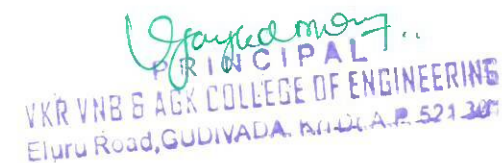 PRINCIPAL
VKR VNB & AGK COLLEGE OF ENGINEERING
Eluru Road, GUDIVADA, A.P. 521 301